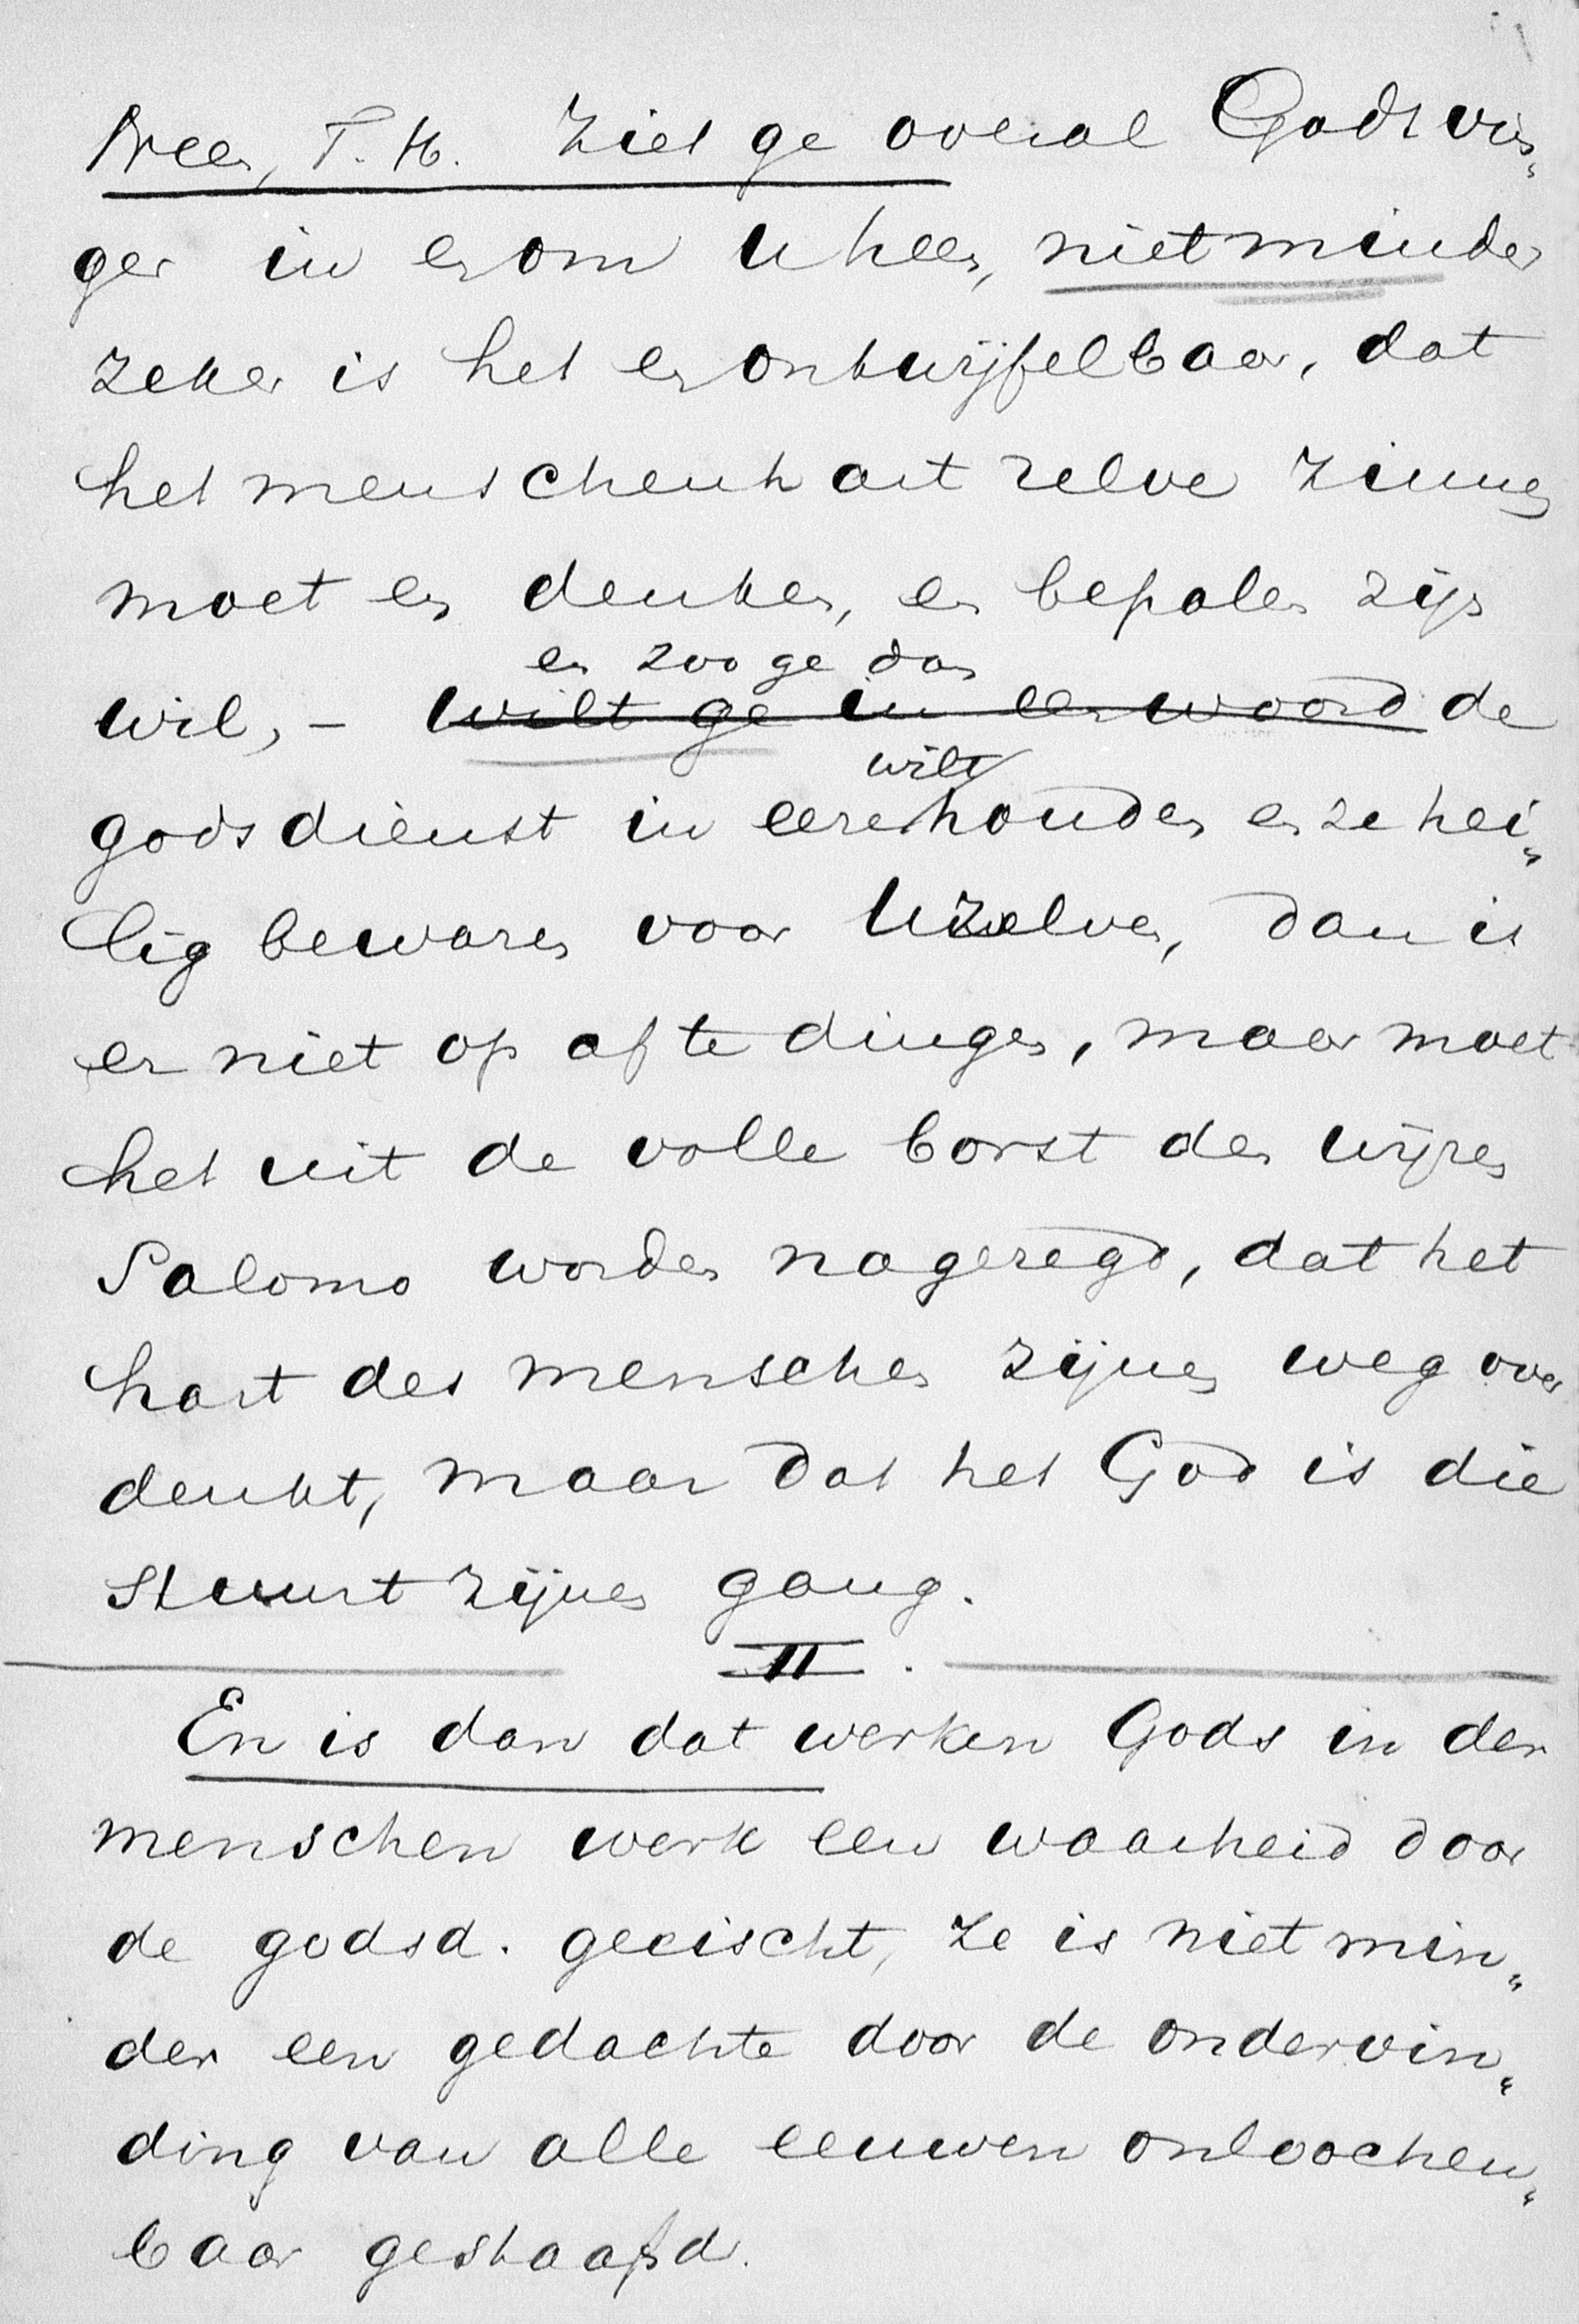 Neen, T. H. Ziet ge overal Gods vin„
ger in en om u heen, niet minder
zeker is het en ontwijfelbaar, dat
het menschenhart zelve zinnen
moet en denken, en bepalen zijn
en zoo ge dan
wil, – wilt ge in een woord de
wilt
godsdienst in eere houden en ze hei„
lig bewaren voor Uzelven, dan is
er niet op af te dingen, maar moet
het uit de volle borst den wijzen
Salomo worden nagezegd, dat het
hart des menschen zijnen weg over
denkt, maar dat het God is die
stuurt zijnen gang.
II.
En is dan dat werken Gods in der
menschen werk een waarheid door
de godsd. geeischt, ze is niet min„
der een gedachte door de ondervin„
ding van alle eeuwen onloochen„
baar gestaafd.